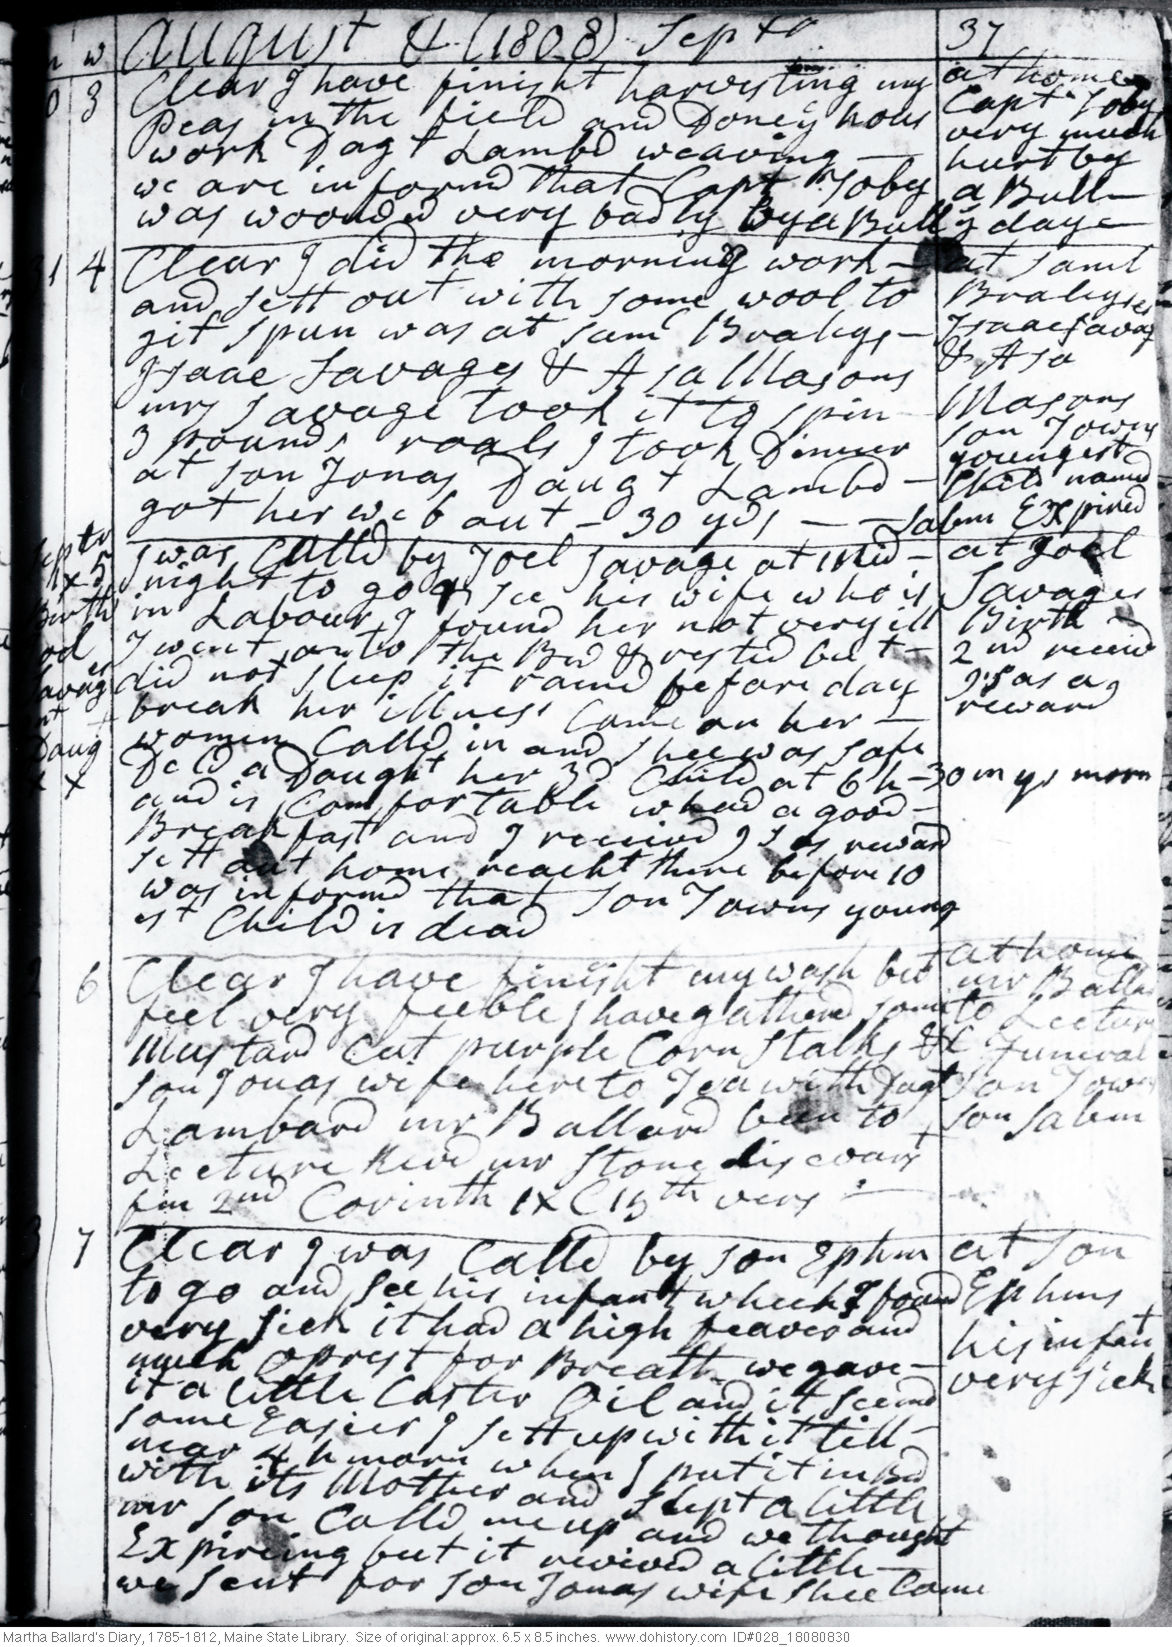 m w August & (1808) Septr 37
0 3 Clear I have finisht harvesting my
Peas in the field and Doney hous
work Dagt Lambd weaving —
we are informd that Capt Toby
was woonded very badly by a Bull
at home
Capt Toby
very much
hurt by
a Bull
ys day
31 4 Clear I did the morning work —
and sett out with some wool to
git spun was at Saml Brakys —
Isaac Savages & Asa Masons
mrs Savage took it to spin
3 pounds roals I took Dinner
at son Jonas Daugt Lambd —
got her web out – 30 yds — —
at Saml
Brakyses
Isaac Savag
& Asa
Masons
son Towns
youngest
Child named
Salem Expired
Septr
1 x 5 I was Calld by Joel Savage at Mid —
night to go & See his wife who is
in Labour, I found her not very ill
I went onto the Bed & rested but —
did not sleep it raind before day
break her illness Came on her —
women Calld in and shee was safe
Deld a Daught her 3d Child at 6 h – 30 m ys morn
and is Comfortable had a good —
Breakfast and I receivd 9 s as reward
sett out home reacht there before 10
was informd that son Towns young
est Child is dead
Birth
Joel
Savages
Daug
x x
at Joel
Savages
Birth
2nd receivd
9 s as a
reward
2 6 Clear I have finisht my wash but
feel very feeble I have gatherd some
Mustard Cut purple Corn Stalks &c
son Jonas wife here to Tea with Dagt
Lambard mr Ballard been to
Lecture Revd mr Stone discoarst
fm 2nd Corinth 1x C 15th vers —
at home
mr Balld
to Lecture
Funeral
son Towns
son Salem
3 7 Clear I was Calld by son Ephm
to go and See his infant which I found
very sick it had a high feaver and
much oprest for Breath we gave —
it a little Caster Oil and it seemd
some Easier I sett up with it till —
near 4 h morn when I put it in Bed
with its Mother and slept a little
mr son Calld me up and we thought
Expireing but it revived a little —
we sent for son Jonas wife shee Came
at son
Ephms
his infant
very sick
Martha Ballard's Diary, 1785-1812, Maine State Library. Size of original: approx. 6.5 x 8.5 inches. www.dohistory.com ID#028_18080830